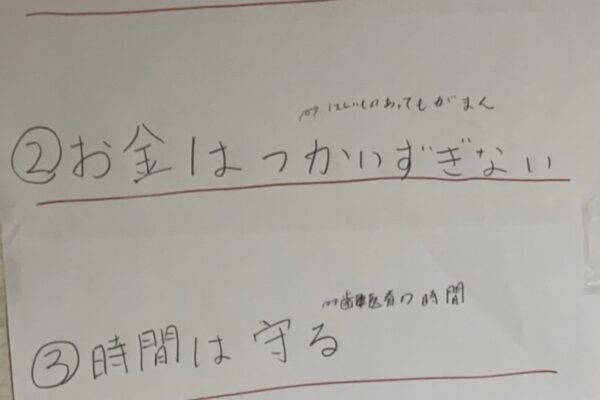 ほしいものあってもがまん
②お金はつかいずぎない
歯医者の時間
③時間は守る